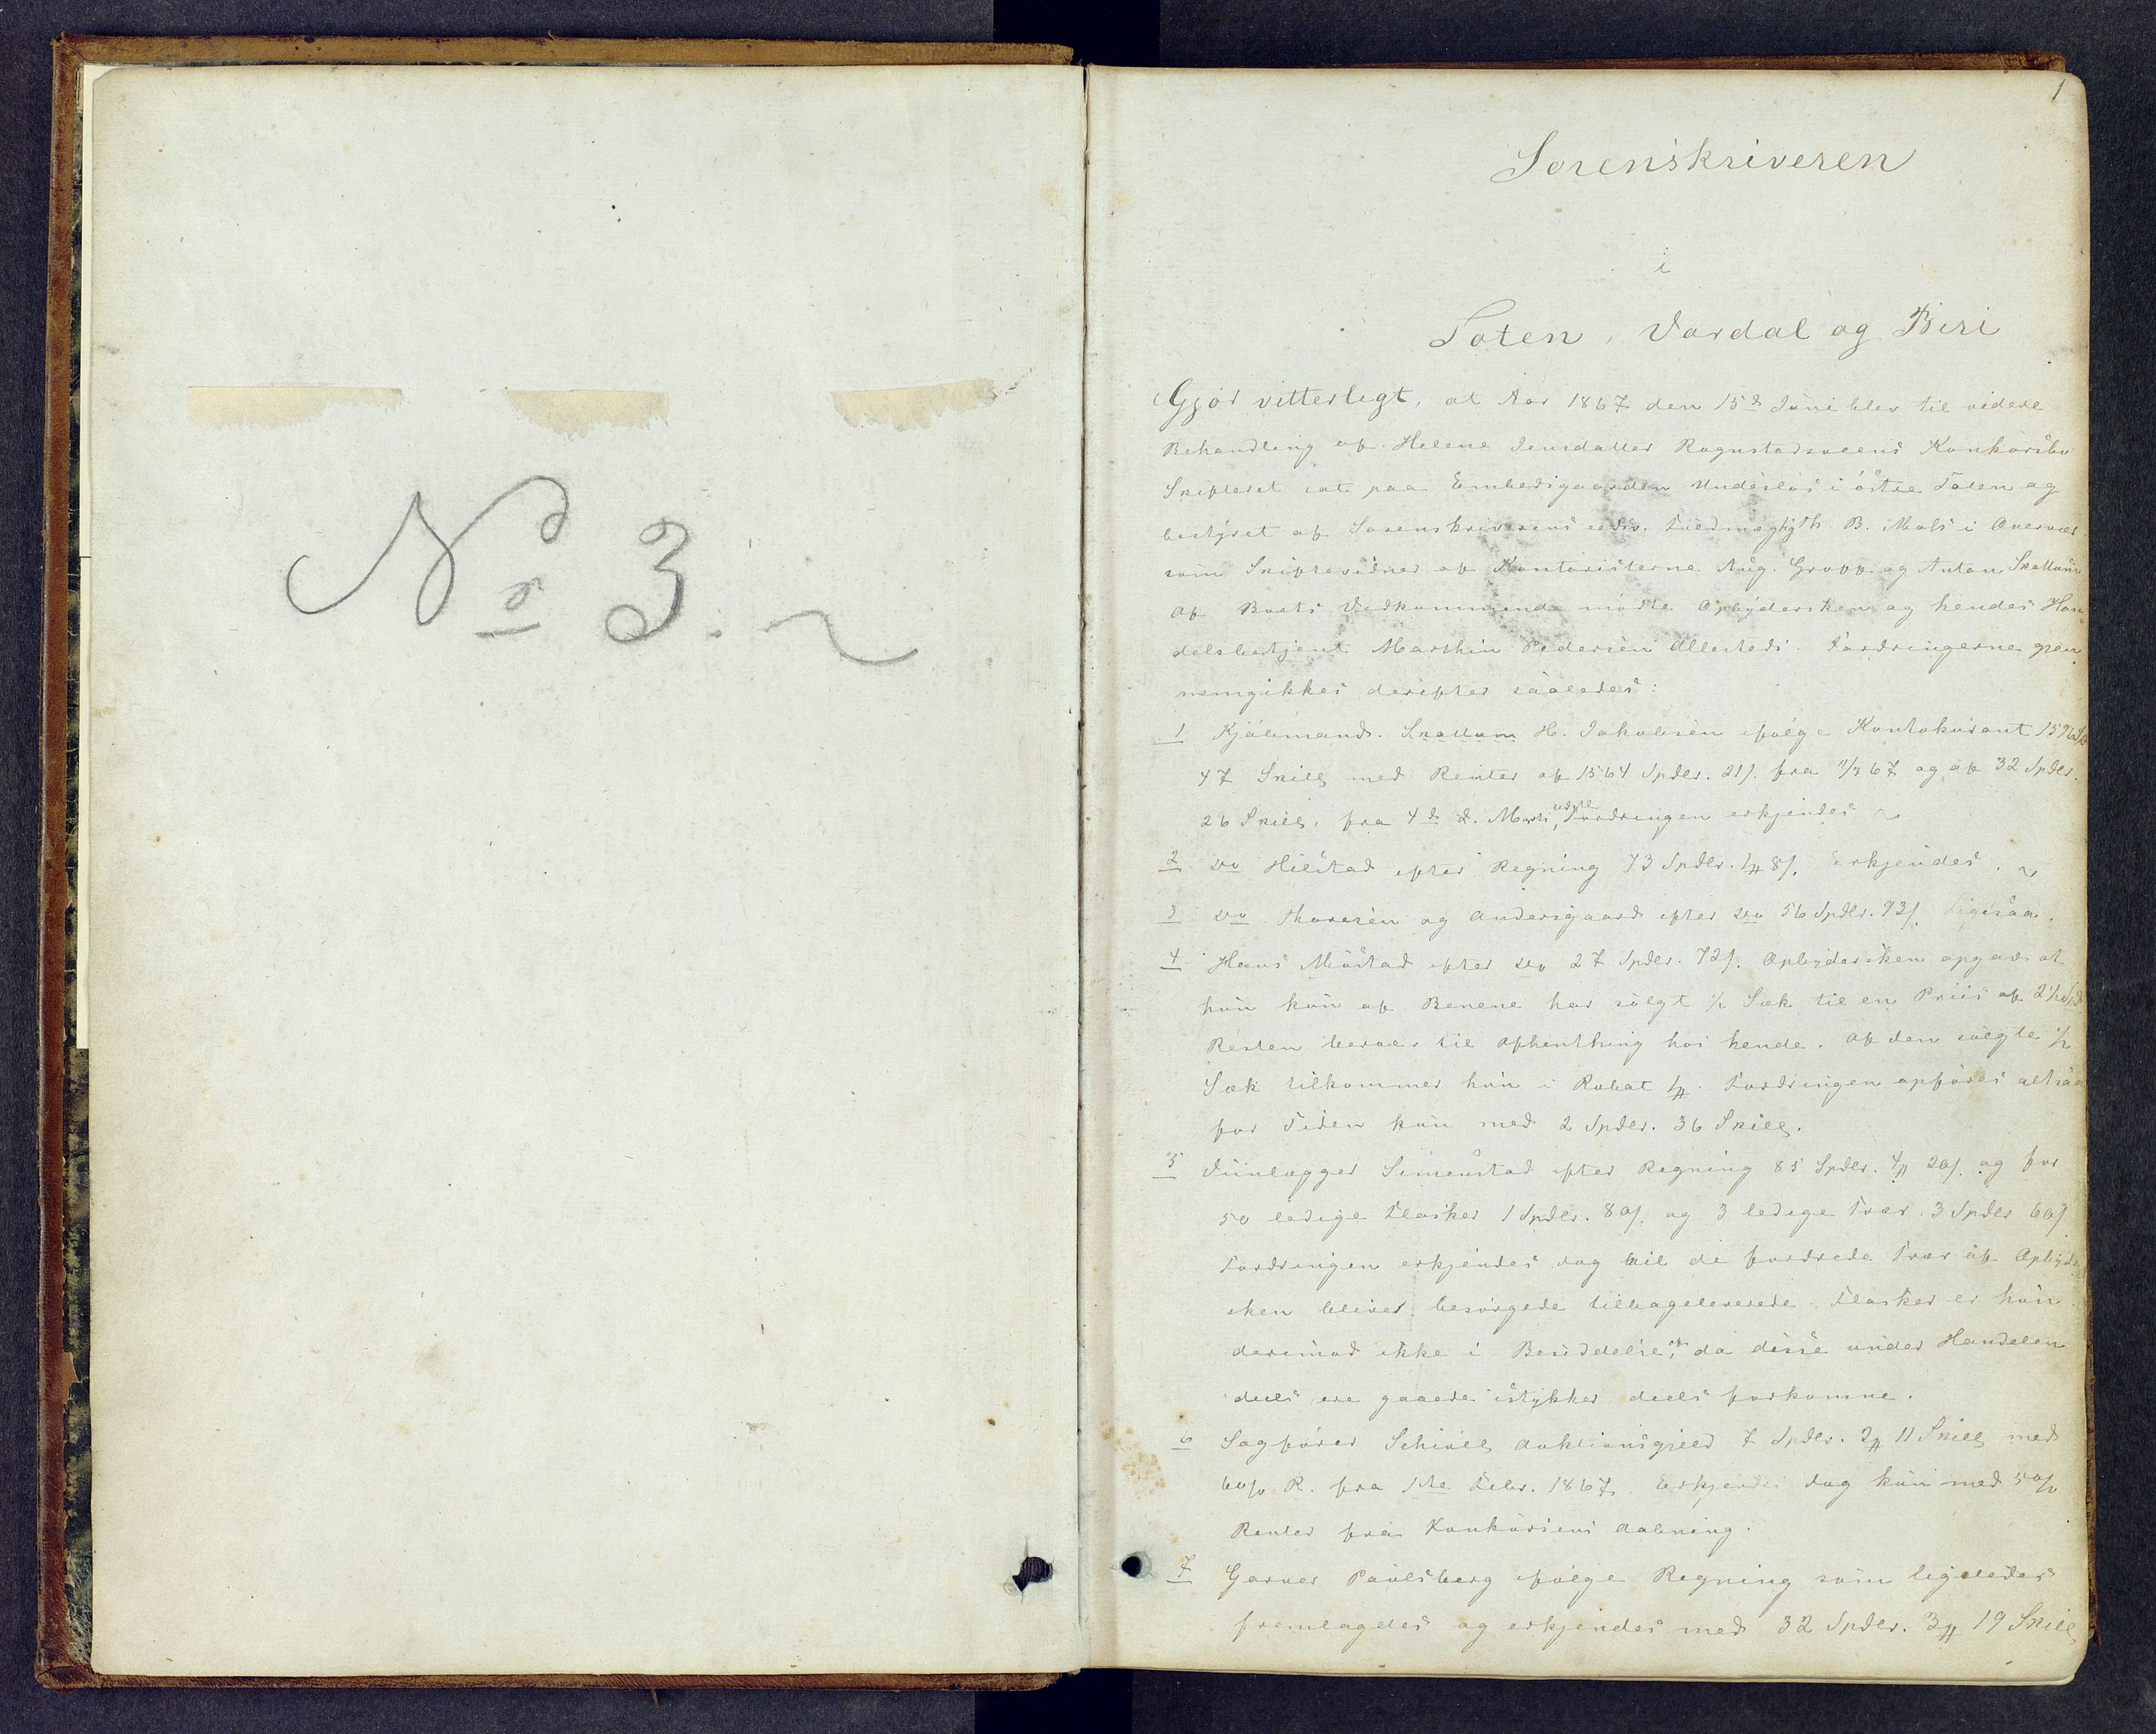 No 3.
1
Sorenskriveren
i
Toten, Vardal og Biri
Gjör vitterligt, at Aar 1867 den 15de Juni blev til videre
Behandling af Helene Jensdatter Rognstadsveens Konkursbo
Skifteret sat paa Embedsgaarden i östre Toten og
bestyret af Sorenskriverens edsv. Fuldmægtig Th. B.
som Skiftevidner af Kontoristerne Aug. og Anton
Af Boets Vedkommende mödte Opbydersken og hendes Han-
delsbetjent Marthin Pedersen Allesteds. Fordringerne gjen-
nemgikkes derefter saaledes:
1 Kjöbmand Skattum H. Jakobsen ifölge Kontokurant 1596 Spd
47 Skill med Renter af 1564 Spdlr. 21 s. fra 1/3 67 og af 32 Spdlr.
26 Skill. fra 4de d. Marts, Fordringen erkjendes
2 do Hilstad efter Regning 73 Spdlr. 1 # 8 s. Erkjendes.
3 do Thoresen og Andersgaard efter do 56 Spdlr. 93 s. Ligesaa.
4 Hans Mustad efter do 27 Spdlr. 72 s. Opbydersken opgav at
hun kun af Benene har solgt 1/2 Sæk til en Priis af 2 1/2 Spd
Resten beroer til Afhenthing hos hende. Af den solgte 1/2
Sæk tilkommer hun i Rabat 1 #. Fordringen opföres altsaa
for Tiden kun med 2 Spdlr. 36 Skill.
5 Viinlægger Simenstad efter Regning 85 Spdlr. 4 # 20 s. og for
50 ledige Flasker 1 Spdlr. 80 s. og 3 ledige Træer 3 Spdlr 60 s
Fordringen erkjendes dog vil de fordrede Træer af Opbyder
sken bliver besörgede tilbageleverede. Flasker er hun
derimod ikke i Besiddelse af, da disse under Handelen
deels ere gaaede istykker deels forkomne.
6 Sagförer Schiöll Auktionsgjeld 7 Spdlr. 2 # 11 Skill med
6 o/o R. fra 1ste Febr. 1867. Erkjendes dog kun med 5 o/o
Renter fra Konkursens Aabning.
7 Garver Paulsberg ifölge Regning som ligeledes
fremlagdes og erkjendes med 32 Spdlr. 3 # 19 Skill